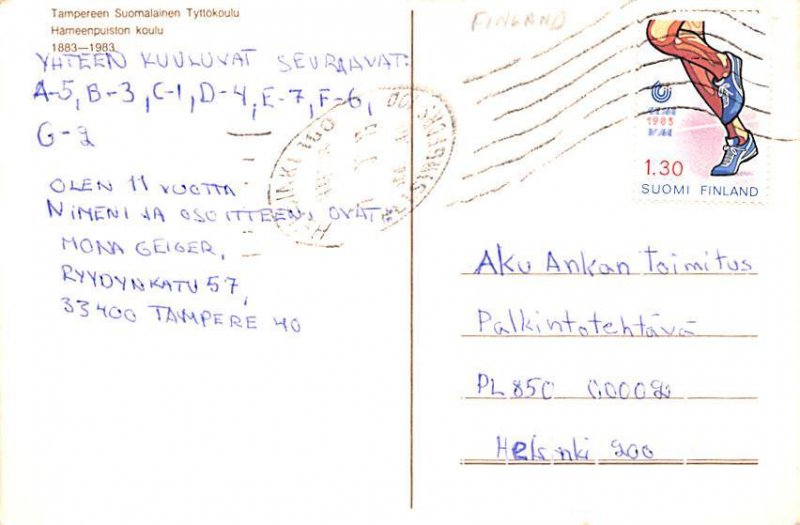 Tampereen Suomalainen Tyttökoulu
Hämeenpuiston koulu
1883–1983
YHTEEN KUULUVAT SEURAAVAT:
A-5, B-3, C-1, D-4, E-7, F-6,
G-2
OLEN 11 VUOTTA
NIMENI JA OSOITTEENI OVAT
MONA GEIGER,
RYYDYNKATU 57,
33400 TAMPERE 40
FINGAND
MM
1983
VM
1.30
SUOMI FINLAND
Aku Ankan Toimitus
Palkintotehtävä
PL 850 00002
Helsinki 200